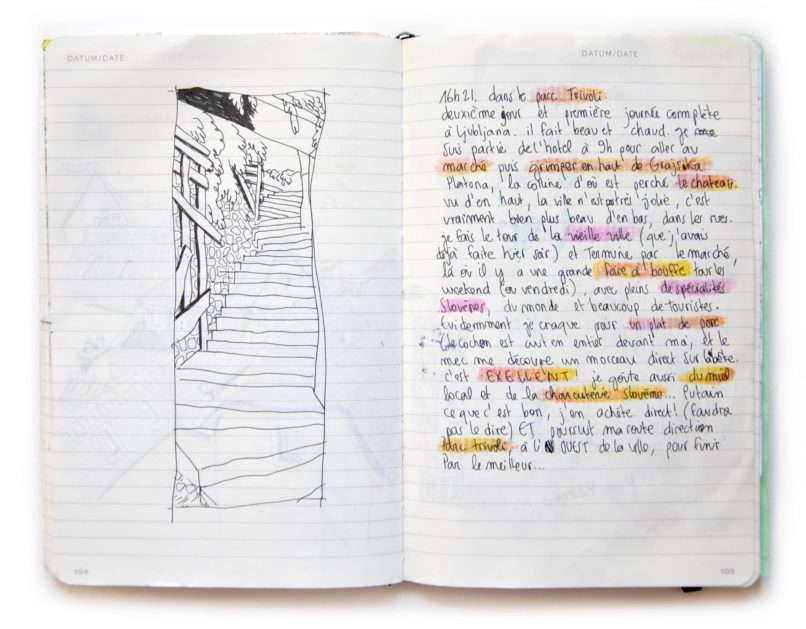 DATUM/DATE
104
DATUM/DATE
16h21. dans le parc Trivoli
deuxième jour et première journée complète
à Ljubljana. il fait beau et chaud. Je
suis partie de l'hotel à 9h pour aller au
marché puis grimper en haut de Grajska
Platona, la colline d'où est perché le chateau.
vu d'en haut, la ville n'est pas très jolie, c'est
vraiment bien plus beau d'en bas, dans les rues.
je fais le tour de la vieille ville (que j'avais
déjà faite hier soir) et Termine par le marché,
là où il y à une grande foire à bouffe tous les
weekend (ou vendredi), avec pleins de spécialités
Slovènes, du monde et beaucoup de touristes.
Evidemment je craque pour un plat de porc
Le cochon est cuit en entier devant moi, et le
mec me découpe un morceau direct sur la bête.
c'est EXELLENT! je goûte aussi du miel
local et de la charcuterie slovène... Putain
ce que c'est bon, j'en achète direct! (faudra
pas le dire) ET poursuit ma route direction
Parc trivoli, à l'OUEST de la ville, pour finir
Par le meilleur...
105